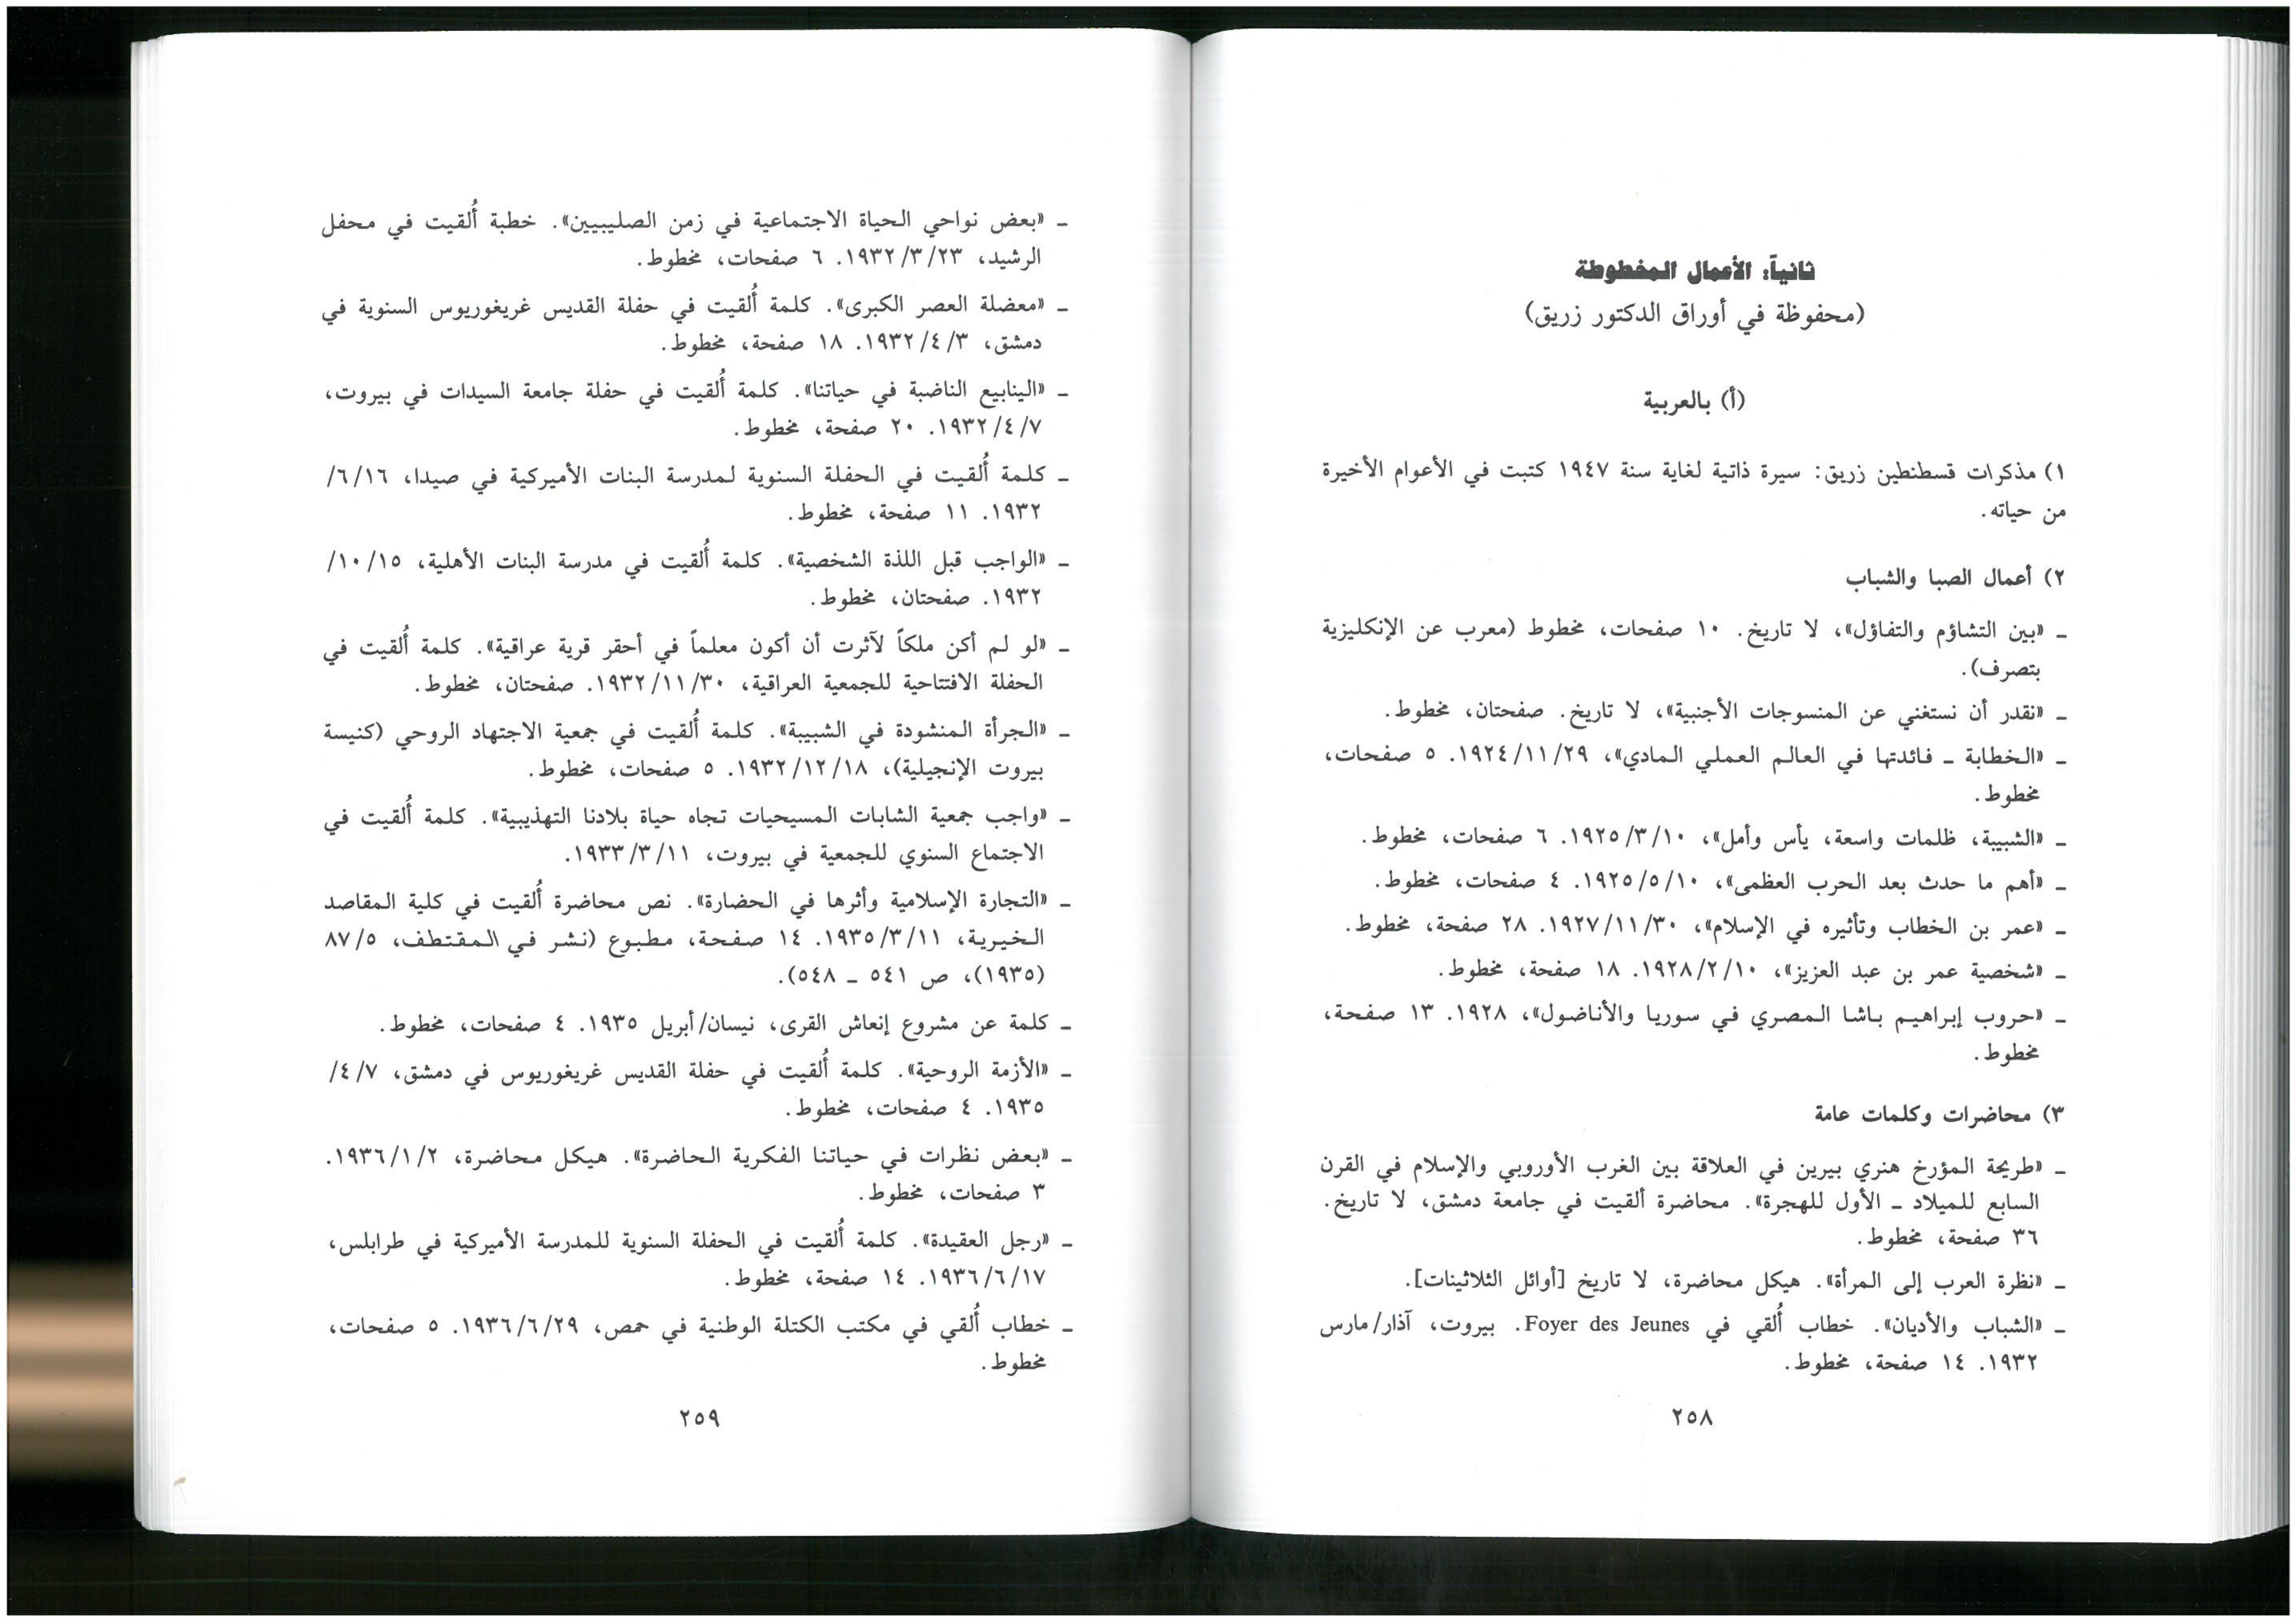 ثانياً: الأعمال المخطوطة
(محفوظة في أوراق الدكتور زريق)
(أ) بالعربية
١) مذكرات قسطنطين زريق: سيرة ذاتية لغاية سنة ١٩٤٧ كتبت في الأعوام الأخيرة
من حياته.
٢) أعمال الصبا والشباب
ـ «بين التشاؤم والتفاؤل»، لا تاريخ. ١٠ صفحات، مخطوط (معرب عن الإنكليزية
بتصرف).
ـ «نقدر أن نستغني عن المنسوجات الأجنبية»، لا تاريخ. صفحتان، مخطوط.
ـ «الخطابة ـ فائدتها في العالم العملي المادي»، ١٩٢٤/١١/٢٩. ٥ صفحات،
مخطوط.
ـ «الشبيبة، ظلمات واسعة، يأس وأمل»، ١٩٢٥/٣/١٠. ٦ صفحات، مخطوط.
ـ «أهم ما حدث بعد الحرب العظمى»، ١٩٢٥/٥/١٠. ٤ صفحات، مخطوط.
ـ «عمر بن الخطاب وتأثيره في الإسلام»، ١٩٢٧/١١/٣٠. ٢٨ صفحة، مخطوط.
ـ «شخصية عمر بن عبد العزيز»، ١٩٢٨/٢/١٠. ١٨ صفحة، مخطوط.
ـ «حروب إبراهيم باشا المصري في سوريا والأناضول»، ١٩٢٨. ١٣ صفحة،
مخطوط.
٣) محاضرات وكلمات عامة
ـ «طريحة المؤرخ هنري بيرين في العلاقة بين الغرب الأوروبي والإسلام في القرن
السابع للميلاد ـ الأول للهجرة». محاضرة ألقيت في جامعة دمشق، لا تاريخ.
٣٦ صفحة، مخطوط.
ـ «نظرة العرب إلى المرأة». هيكل محاضرة، لا تاريخ [أوائل الثلاثينات].
ـ «الشباب والأديان». خطاب أُلقي في Foyer des Jeunes. بيروت، آذار/مارس
١٩٣٢. ١٤ صفحة، مخطوط.
٢٥٨
ـ «بعض نواحي الحياة الاجتماعية في زمن الصليبيين». خطبة أُلقيت في محفل
الرشيد، ١٩٣٢/٣/٢٣. ٦ صفحات، مخطوط.
ـ «معضلة العصر الكبرى». كلمة أُلقيت في حفلة القديس غريغوريوس السنوية في
دمشق، ١٩٣٢/٤/٣. ١٨ صفحة، مخطوط.
ـ «الينابيع الناضبة في حياتنا». كلمة أُلقيت في حفلة جامعة السيدات في بيروت،
١٩٣٢/٤/٧. ٢٠ صفحة، مخطوط.
ـ كلمة أُلقيت في الحفلة السنوية لمدرسة البنات الأميركية في صيدا، ٦/١٦/
١٩٣٢. ١١ صفحة، مخطوط.
ـ «الواجب قبل اللذة الشخصية». كلمة أُلقيت في مدرسة البنات الأهلية، ١٠/١٥/
١٩٣٢. صفحتان، مخطوط.
ـ «لو لم أكن ملكاً لآثرت أن أكون معلماً في أحقر قرية عراقية». كلمة أُلقيت في
الحفلة الافتتاحية للجمعية العراقية، ١٩٣٢/١١/٣٠. صفحتان، مخطوط.
ـ «الجرأة المنشودة في الشبيبة». كلمة أُلقيت في جمعية الاجتهاد الروحي (كنيسة
بيروت الإنجيلية)، ١٩٣٢/١٢/١٨. ٥ صفحات، مخطوط.
ـ «واجب جمعية الشابات المسيحيات تجاه حياة بلادنا التهذيبية». كلمة أُلقيت في
الاجتماع السنوي للجمعية في بيروت، ١٩٣٣/٣/١١.
ـ «التجارة الإسلامية وأثرها في الحضارة». نص محاضرة أُلقيت في كلية المقاصد
الخيرية، ١٩٣٥/٣/١١. ١٤ صفحة، مطبوع (نشر في المقتطف، ٨٧/٥
(١٩٣٥)، ص ٥٤١ ـ ٥٤٨).
ـ كلمة عن مشروع إنعاش القرى، نيسان/أبريل ١٩٣٥. ٤ صفحات، مخطوط.
ـ «الأزمة الروحية». كلمة أُلقيت في حفلة القديس غريغوريوس في دمشق، ٤/٧/
١٩٣٥. ٤ صفحات، مخطوط.
ـ «بعض نظرات في حياتنا الفكرية الحاضرة». هيكل محاضرة، ١٩٣٦/١/٢.
٣ صفحات، مخطوط.
ـ «رجل العقيدة». كلمة أُلقيت في الحفلة السنوية للمدرسة الأميركية في طرابلس،
١٩٣٦/٦/١٧. ١٤ صفحة، مخطوط.
ـ خطاب أُلقي في مكتب الكتلة الوطنية في حمص، ١٩٣٦/٦/٢٩. ٥ صفحات،
مخطوط.
٢٥٩